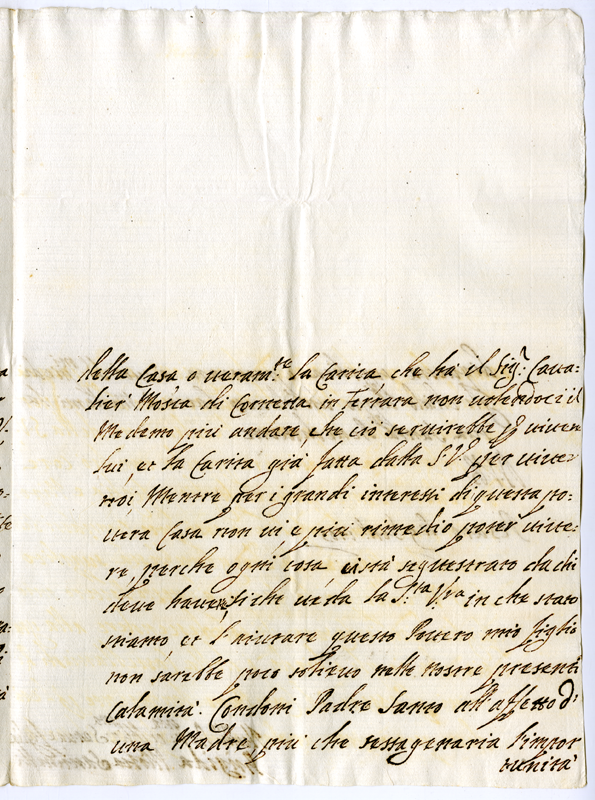 della Casa, o veram.te la Carica che hà il Sig.r Cava=
lier' Mosca di Cornetta in Ferrara non volendoci il
Medemo più andare, che ciò servirebbe p viver
lui, et la Carità già fatta dalla S.V. per viver
noi, Mentre per i grandi interessi di questa po=
vera Casa non vi è più rimedio poter vive=
re, perche ogni cosa ci stà sequestrato da chi
deve haver, siche veda la S.tà V.ra in che stato
stiamo, et l'aiutare questo Povero mio figlio
non sarebbe poco solievo nelle nostre presenti
Calamità. Condoni Padre Santo all'affetto d'
una Madre, più che sessagenaria l'impor
tunità